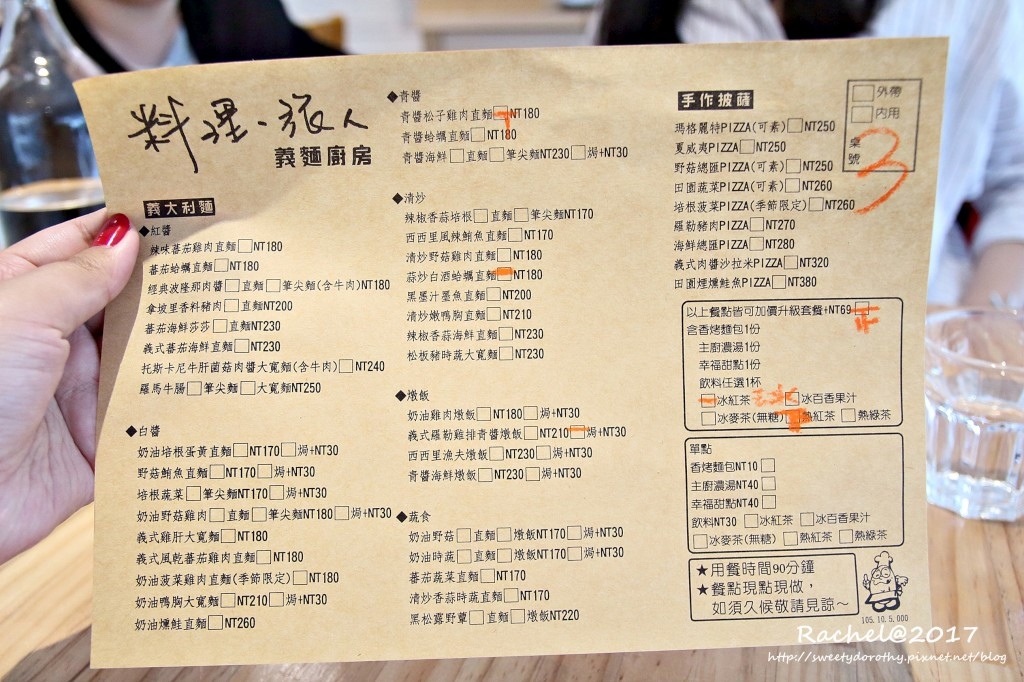 料理·旅人
義麵廚房
義大利麵
◆紅醬
辣味蕃茄雞肉直麵□NT180
蕃茄蛤蠣直麵□NT180
經典波隆那肉醬□直麵□筆尖麵(含牛肉)NT180
拿坡里香料豬肉□直麵NT200
蕃茄海鮮莎莎□直麵NT230
義式蕃茄海鮮直麵□NT230
托斯卡尼牛肝菌菇肉醬大寬麵(含牛肉)□NT240
羅馬牛腩□筆尖麵□大寬麵NT250
◆白醬
奶油培根蛋黃直麵□NT170□焗+NT30
野菇鮪魚直麵□NT170□焗+NT30
培根蔬菜□筆尖麵NT170□焗+NT30
奶油野菇雞肉□直麵□筆尖麵NT180□焗+NT30
義式雞肝大寬麵□NT180
義式風乾蕃茄雞肉直麵□NT180
奶油菠菜雞肉直麵(季節限定)□NT180
奶油鴨胸大寬麵□NT210□焗+NT30
奶油燻鮭直麵□NT260
◆青醬
青醬松子雞肉直麵□NT180
青醬蛤蠣直麵□NT180
青醬海鮮□直麵□筆尖麵NT230□焗+NT30
◆清炒
辣椒香蒜培根□直麵□筆尖麵NT170
西西里風辣鮪魚直麵□NT170
清炒野菇雞肉直麵□NT180
蒜炒白酒蛤蠣直麵□NT180
黑墨汁墨魚直麵□NT200
清炒嫩鴨胸直麵□NT210
辣椒香蒜海鮮直麵□NT230
松板豬時蔬大寬麵□NT230
◆燉飯
奶油雞肉燉飯□NT180□焗+NT30
義式羅勒雞排青醬燉飯□NT210□焗+NT30
西西里漁夫燉飯□NT230□焗+NT30
青醬海鮮燉飯□NT230□焗+NT30
◆蔬食
奶油野菇□直麵□燉飯NT170□焗+NT30
奶油時蔬□直麵□燉飯NT170□焗+NT30
蕃茄蔬菜直麵□NT170
清炒香蒜時蔬直麵□NT170
黑松露野蕈□直麵□燉飯NT220
手作披薩
瑪格麗特PIZZA(可素)□NT250
夏威夷PIZZA□NT250
野菇總匯PIZZA(可素)□NT250
田園蔬菜PIZZA(可素)□NT260
培根菠菜PIZZA(季節限定)□NT260
羅勒豬肉PIZZA□NT270
海鮮總匯PIZZA□NT280
義式肉醬沙拉米PIZZA□NT320
田園煙燻鮭魚PIZZA□NT380
□外帶
□內用
桌號 3
以上餐點皆可加價升級套餐+NT69□
含香烤麵包1份
主廚濃湯1份
幸福甜點1份
飲料任選1杯
□冰紅茶 □冰百香果汁
□冰麥茶(無糖)□熱紅茶□熱綠茶
單點
香烤麵包NT10□
主廚濃湯NT40□
幸福甜點NT40□
飲料NT30 □冰紅茶 □冰百香果汁
□冰麥茶(無糖)□熱紅茶□熱綠茶
★用餐時間90分鐘
★餐點現點現做，
如須久候敬請見諒～
105.10.5.000
Rachel@2017
http://sweetydorothy.pixnet.net/blog